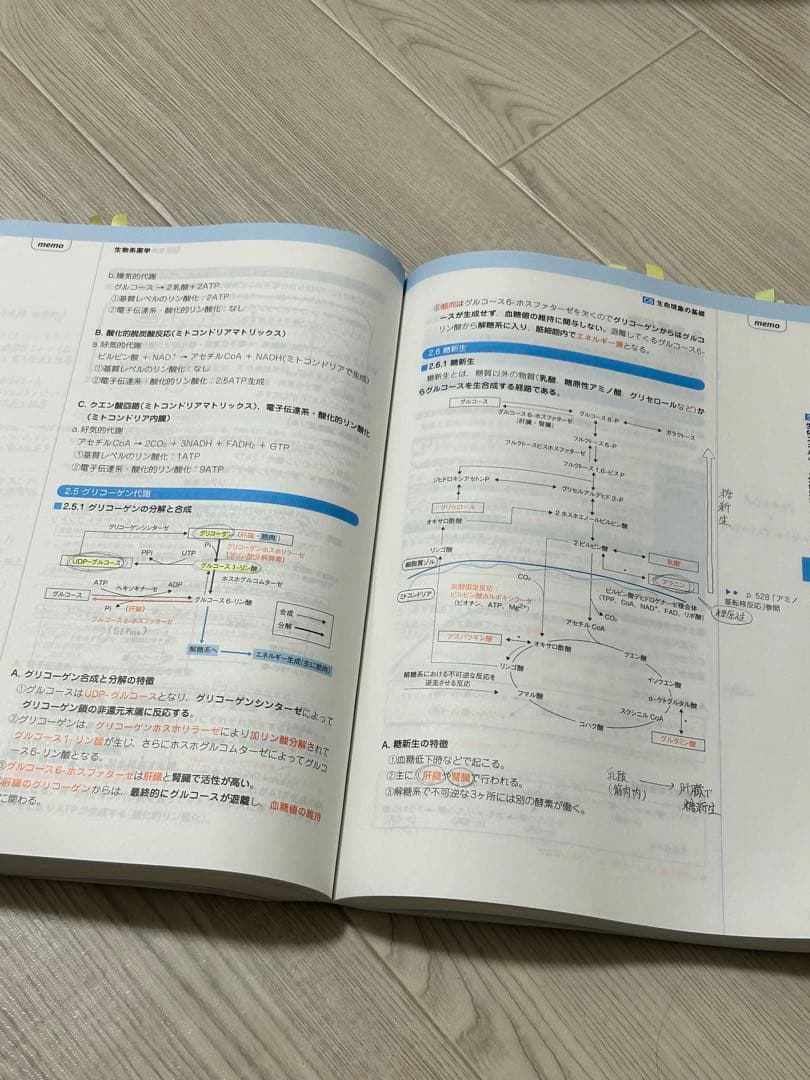 memo
生物系薬学
b. 嫌気的代謝
グルコース → 2乳酸+2ATP
①基質レベルのリン酸化:2ATP
②電子伝達系・酸化的リン酸化:なし
B. 酸化的脱炭酸反応(ミトコンドリアマトリックス)
a. 好気的代謝
ピルビン酸 + NAD⁺ → アセチルCoA + NADH(ミトコンドリアで生成)
①基質レベルのリン酸化:なし
②電子伝達系・酸化的リン酸化:2.5ATP生成
C. クエン酸回路(ミトコンドリアマトリックス)、電子伝達系・酸化的リン酸化
(ミトコンドリア内膜)
a. 好気的代謝
アセチルCoA → 2CO₂ + 3NADH + FADH₂ + GTP
①基質レベルのリン酸化:1ATP
②電子伝達系・酸化的リン酸化:9ATP
2.5 グリコーゲン代謝
2.5.1 グリコーゲンの分解と合成
グリコーゲンシンターゼ
グリコーゲン(肝臓・筋肉)
Pi
グリコーゲンホスホリラーゼ
(加リン酸分解酵素)
PPi
UTP
UDP-グルコース
グルコース1-リン酸
ATP
ヘキソキナーゼ
ADP
ホスホグルコムターゼ
グルコース
グルコース6-リン酸
Pi
(肝臓)
グルコース6-ホスファターゼ
(G6Pase)
合成
分解
解糖系へ
エネルギー生成(主に筋肉)
A. グリコーゲン合成と分解の特徴
①グルコースはUDP-グルコースとなり、グリコーゲンシンターゼによって
グリコーゲン鎖の非還元末端に反応する。
②グリコーゲンは、グリコーゲンホスホリラーゼにより加リン酸分解されて
グルコース1-リン酸が生じ、さらにホスホグルコムターゼによってグルコ
ース6-リン酸となる。
③グルコース6-ホスファターゼは肝臓と腎臓で活性が高い。
肝臓のグリコーゲンからは、最終的にグルコースが遊離し、血糖値の維持
に関わる。
C6 生命現象の基礎
memo
⑤筋肉はグルコース6-ホスファターゼを欠くのでグリコーゲンからはグルコ
ースが生成せず、血糖値の維持に関与しない。遊離してくるグルコース6-
リン酸から解糖系に入り、筋細胞内でエネルギー源となる。
2.6 糖新生
2.6.1 糖新生
糖新生とは、糖質以外の物質(乳酸、糖原性アミノ酸、グリセロールなど)か
らグルコースを生合成する経路である。
グルコース
グルコース6-P
ガラクトース
グルコース6-ホスファターゼ
(肝臓・腎臓)
フルクトース6-P
フルクトースビスホスファターゼ
フルクトース1,6-ビスP
ジヒドロキシアセトンP
グリセルアルデヒド3-P
グリセロール
オキサロ酢酸
2 ホスホエノールピルビン酸
糖新生
リンゴ酸
2 ピルビン酸
乳酸
細胞質ゾル
アラニン
ミトコンドリア
CO₂
炭酸固定反応:
ピルビン酸カルボキシラーゼ
(ビオチン、ATP、Mg²⁺)
ピルビン酸デヒドロゲナーゼ複合体
(TPP、CoA、NAD⁺、FAD、リポ酸)
糖原性
p. 528「アミノ
基転移反応」参照
CO₂
アセチルCoA
アスパラギン酸
オキサロ酢酸
クエン酸
リンゴ酸
イソクエン酸
解糖系における不可逆な反応を
逆走させる反応
フマル酸
α-ケトグルタル酸
スクシニル CoA
コハク酸
グルタミン酸
A. 糖新生の特徴
①血糖低下時などで起こる。
②主に(肝臓や腎臓)で行われる。
③解糖系で不可逆な3ヶ所には別の酵素が働く。
乳酸
(筋肉内)
→ 肝臓で
糖新生